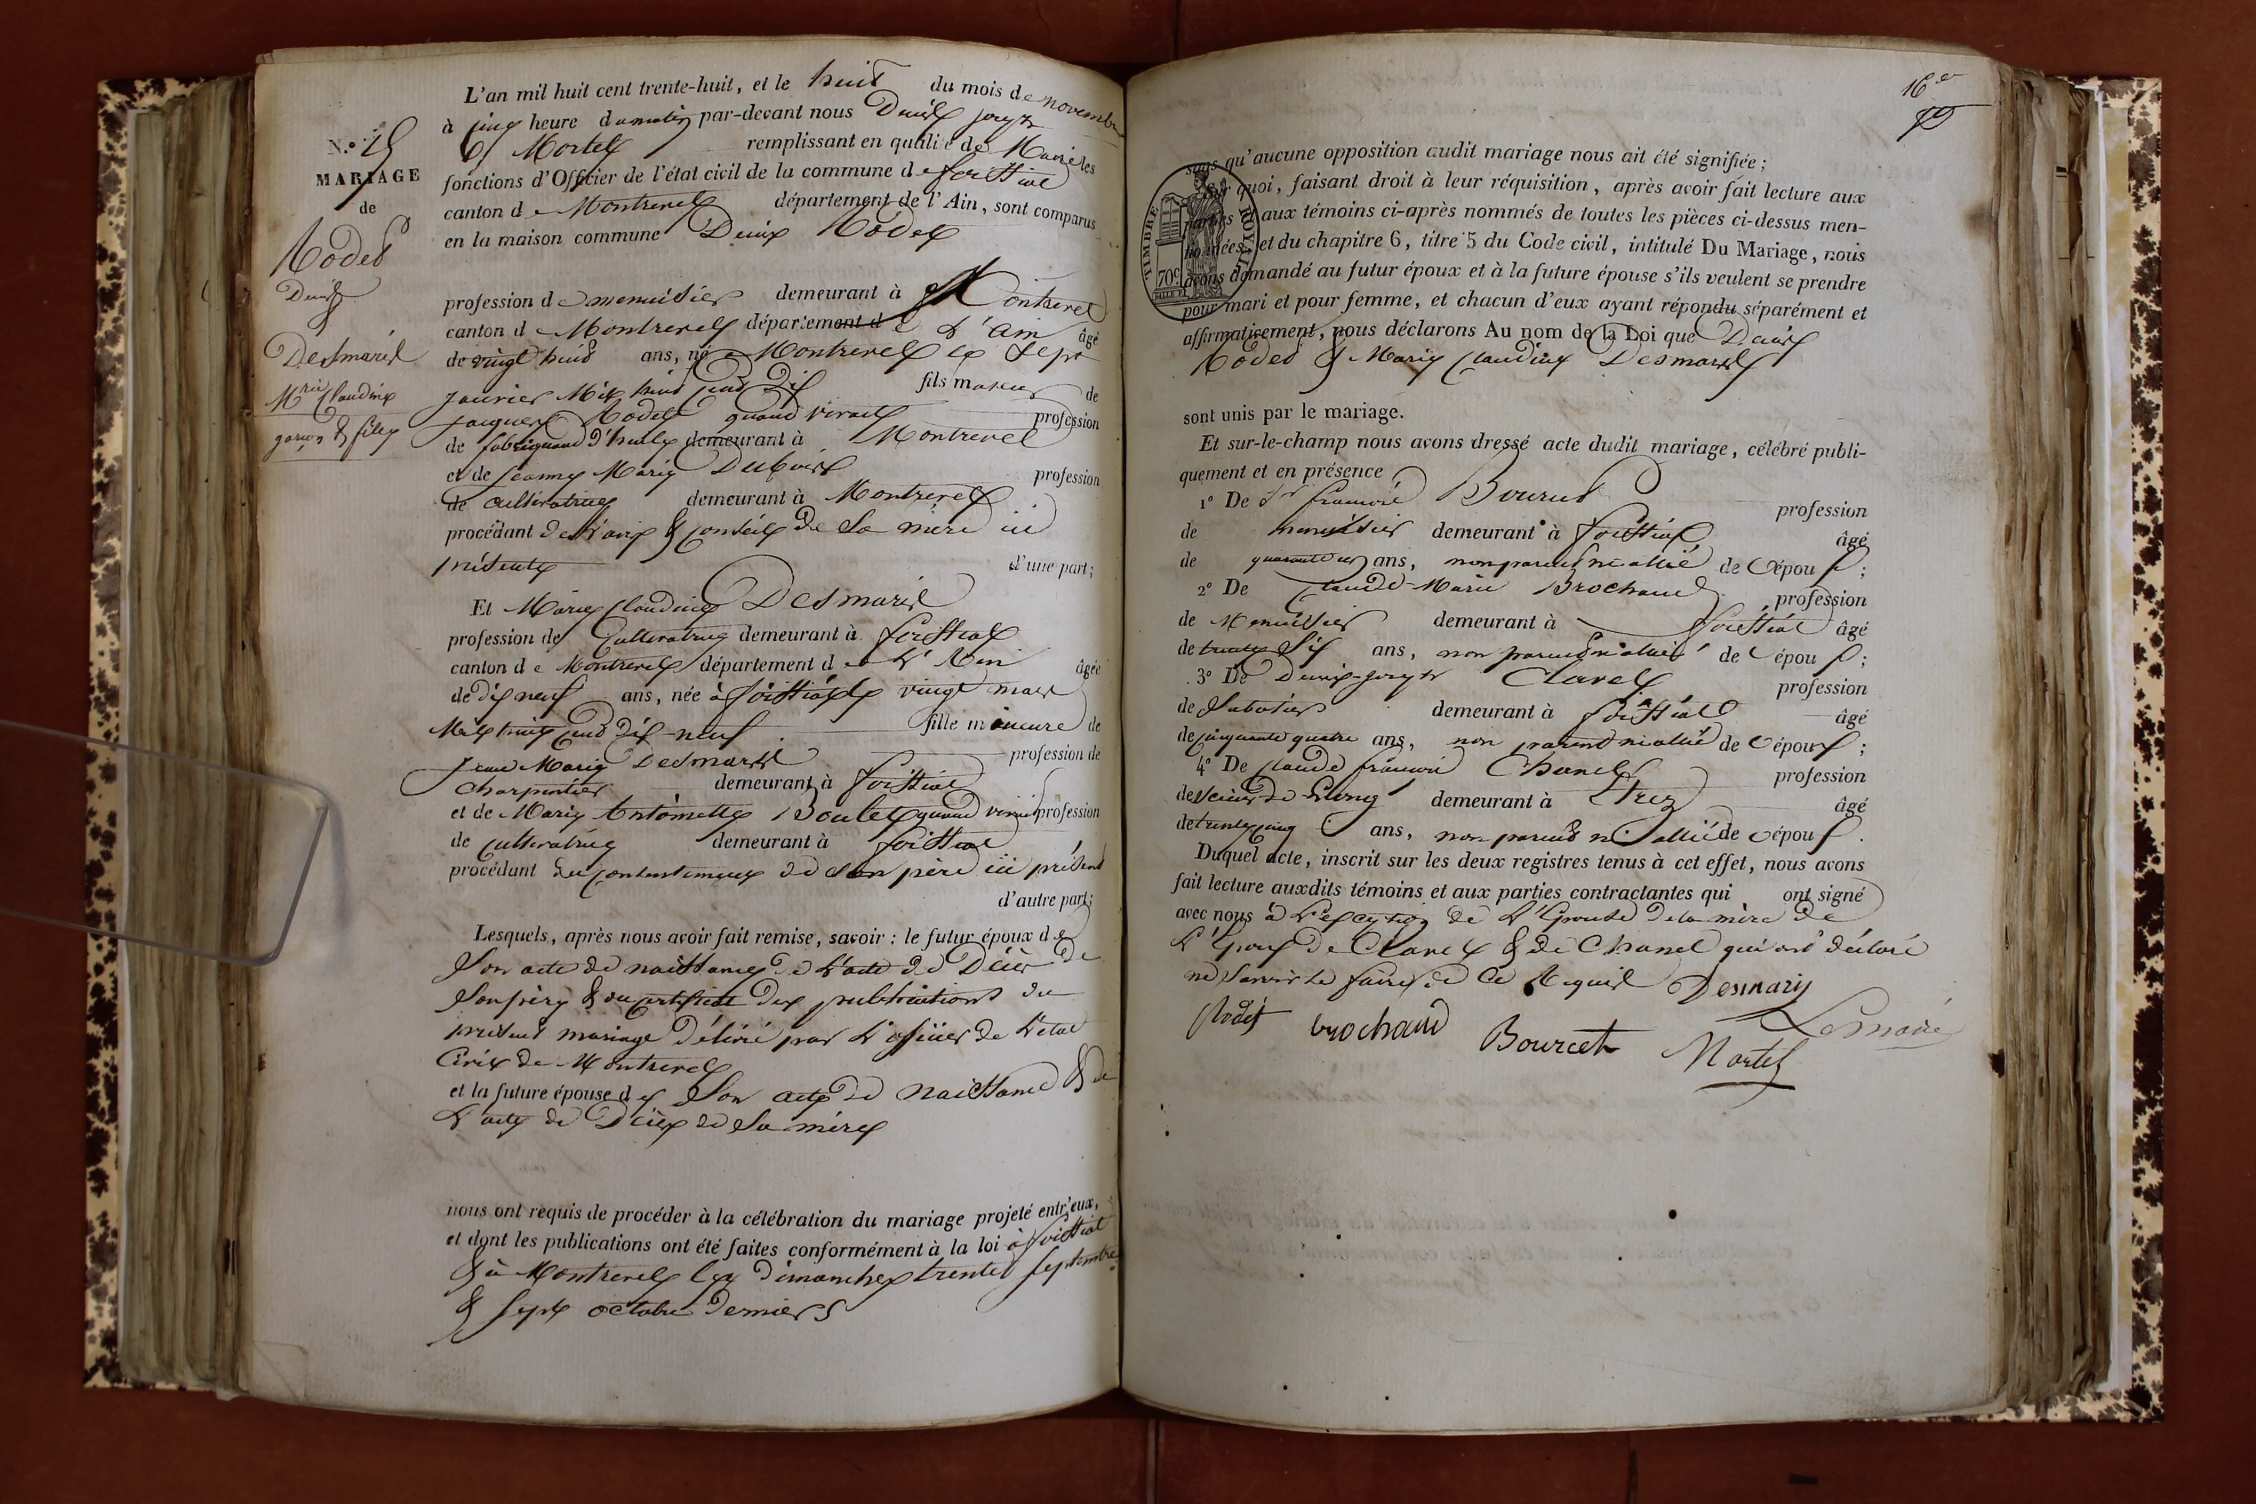 L'an mil huit cent trente-huit, et le huit du mois de novembre
à cinq heure du matin par-devant nous Denis joseph
Mortel remplissant en qualité de Maire les
fonctions d'Officier de l'état civil de la commune de foissiat
canton de Montrevel département de l'Ain, sont comparus
en la maison commune Denis Rodet
N.º 15
MARIAGE
de
Rodet
Denis
&
Desmaris
Mrie Claudine
garçon & fille
profession de menuisier demeurant à Montrevel
canton de Montrevel département de L'ain âgé
de vingt huit ans, né à Montrevel le sept
janvier Mil huit cent dix fils majeur de
jacques Rodet quand vivait profession
de fabriquand d'huile demeurant à Montrevel
et de jeanne Marie Dubois profession
de cultivatrice demeurant à Montrevel
procédant de L'avis & conseil de Sa mère ici
présente d'une part;
Et Marie Claudine Desmaris
profession de Cultivatrice demeurant à foissiat
canton de Montrevel département de L'Ain âgée
de dix neuf ans, née à foissiat le vingt mars
Mil huit cent dix-neuf fille mineure de
Jean Marie Desmaris profession de
Charpentier demeurant à foissiat
et de Marie Antoinette Boulet quand vivait profession
de cultivatrice demeurant à foissiat
procédant du consentement de Son père ici présent
d'autre part;
Lesquels, après nous avoir fait remise, savoir: le futur époux de
Son acte de naissance de L'acte de Décès de
Son père & du certificat des publications du
présent mariage délivré par L'officier de L'état
Civil de Montrevel
et la future épouse de Son acte de naissance & de
L'acte de Décès de Sa mère
nous ont requis de procéder à la célébration du mariage projeté entr'eux,
et dont les publications ont été faites conformément à la loi à foissiat
& à Montrevel les dimanches trente septembre
& sept octobre derniers
16
TIMBRE ROYAL
70c
sans qu'aucune opposition audit mariage nous ait été signifiée;
Sur quoi, faisant droit à leur réquisition, après avoir fait lecture aux
parties et aux témoins ci-après nommés de toutes les pièces ci-dessus men-
tionnées, et du chapitre 6, titre 5 du Code civil, intitulé Du Mariage, nous
avons demandé au futur époux et à la future épouse s'ils veulent se prendre
pour mari et pour femme, et chacun d'eux ayant répondu séparément et
affirmativement, nous déclarons Au nom de la Loi que Denis
Rodet & Marie Claudine Desmaris
sont unis par le mariage.
Et sur-le-champ nous avons dressé acte dudit mariage, célébré publi-
quement et en présence
1º De Sr françois Bourcet profession
de menuisier demeurant à foissiat âgé
de quarante ans, non parent ni allié de l'épou x;
2º De Claude-Marie Brochand profession
de Menuisier demeurant à foissiat âgé
de trente Six ans, non parent ni allié de l'épou x;
3º De Denis-joseph Clavel profession
de Sabotier demeurant à foissiat âgé
de cinquante quatre ans, non parent ni allié de l'époux;
4º De Claude françois Chanel profession
de Scieur de Long demeurant à Etrez âgé
de trente cinq ans, non parent ni allié de l'époux.
Duquel acte, inscrit sur les deux registres tenus à cet effet, nous avons
fait lecture auxdits témoins et aux parties contractantes qui ont signé
avec nous à L'exception de L'Epouse de la mère de
L'Epoux de Clavel & de Chanel qui ont déclaré
ne Savoir le faire de ce Requis Desmaris
Rodet brochand Bourcet Le maire
Mortel